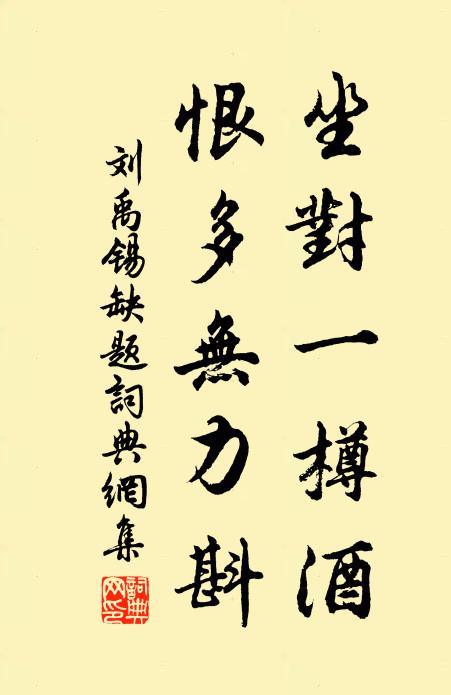 坐對一樽酒
恨多無力斟
刘禹锡缺题詞典網集
詞典
网印